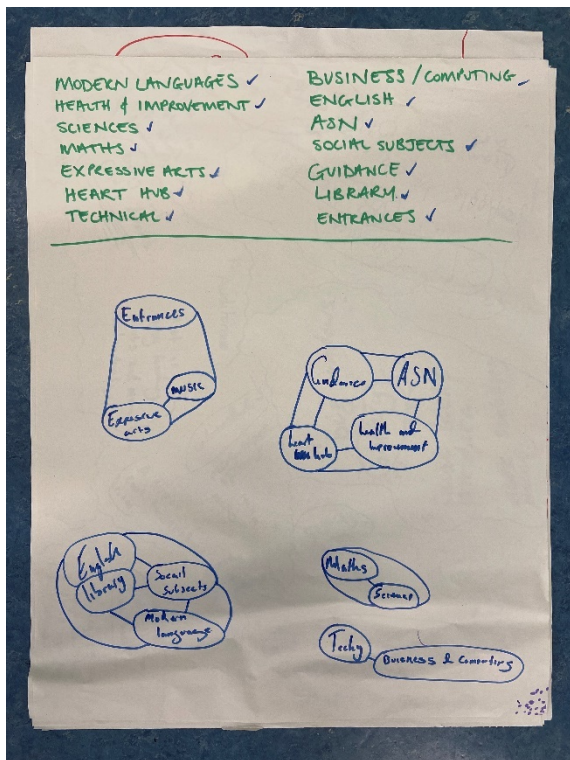 MODERN LANGUAGES ✓
HEALTH & IMPROVEMENT ✓
SCIENCES ✓
MATHS ✓
EXPRESSIVE ARTS ✓
HEART HUB ✓
TECHNICAL ✓
BUSINESS / COMPUTING ✓
ENGLISH ✓
ASN ✓
SOCIAL SUBJECTS ✓
GUIDANCE ✓
LIBRARY ✓
ENTRANCES ✓
Entrances
music
Expressive
arts
Guidance
ASN
heart
hub
health and
Improvement
English
library
Social
Subjects
Modern
language
Maths
Science
Techy
Business & Computing